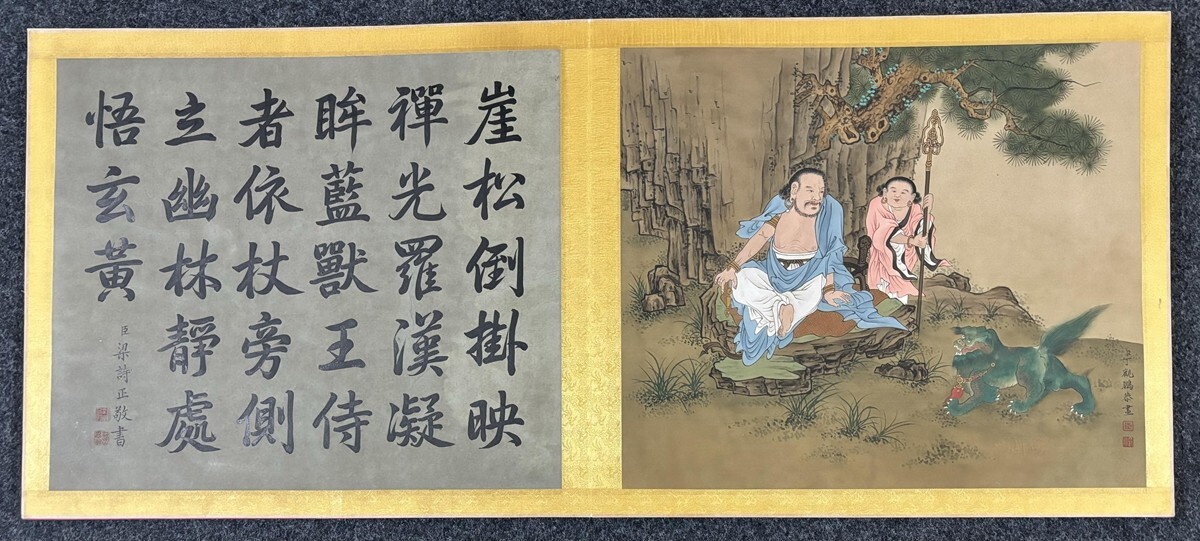 崖松倒掛映
禪光羅漢凝
眸藍獸王侍
者依杖旁側
立幽林靜處
悟玄黃
臣梁詩正敬書
觀鵬恭畫